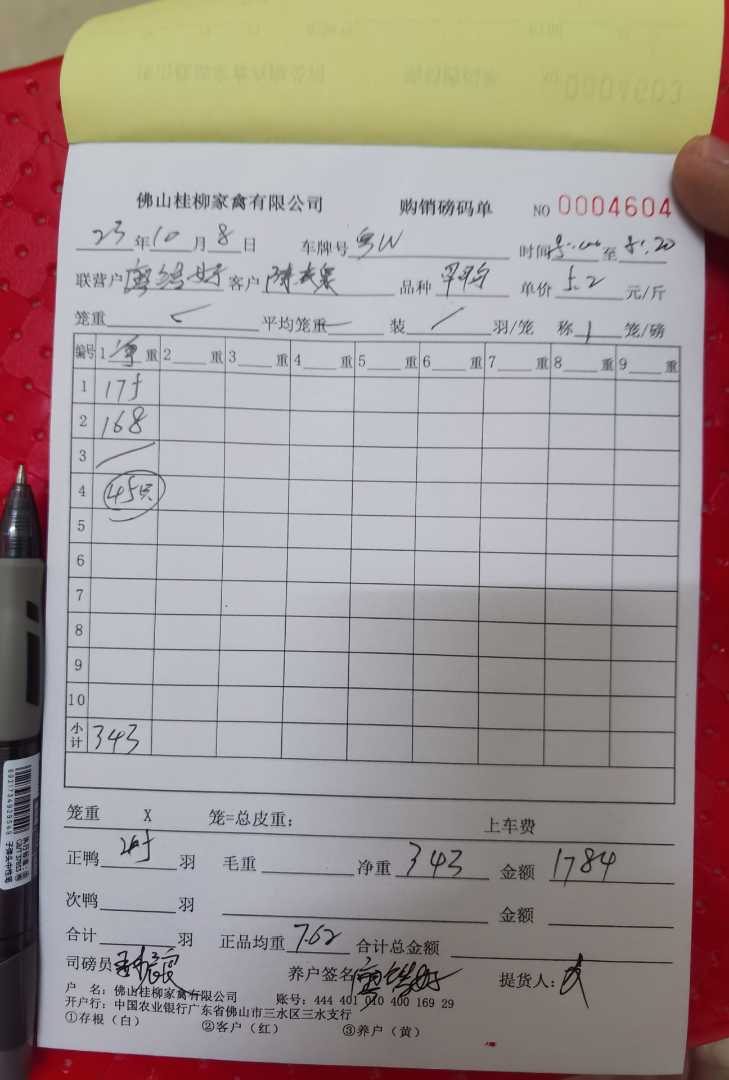 佛山桂柳家禽有限公司 购销磅码单 NO 0004604
23年10月8日 车牌号 粤W 时间 8:00 至 8:20
联营户 客户 品种 单价 5.2 元/斤
笼重 平均笼重 装 / 羽/笼 称 1 笼/磅
编号 1 净 重 2 重 3 重 4 重 5 重 6 重 7 重 8 重 9 重
1 175
2 168
3
4 45只
5
6
7
8
9
10
小计 343
笼重 X 笼=总皮重: 上车费
正鸭 45 羽 毛重 净重 343 金额 1784
次鸭 羽 金额
合计 羽 正品均重 7.62 合计总金额
司磅员 养户签名 提货人:
户 名: 佛山桂柳家禽有限公司 账号: 444 401 010 400 169 29
开户行: 中国农业银行广东省佛山市三水区三水支行
①存根(白) ②客户(红) ③养户(黄)